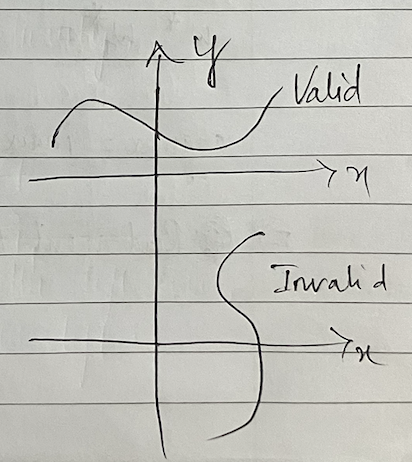 y
Valid
x
Invalid
x